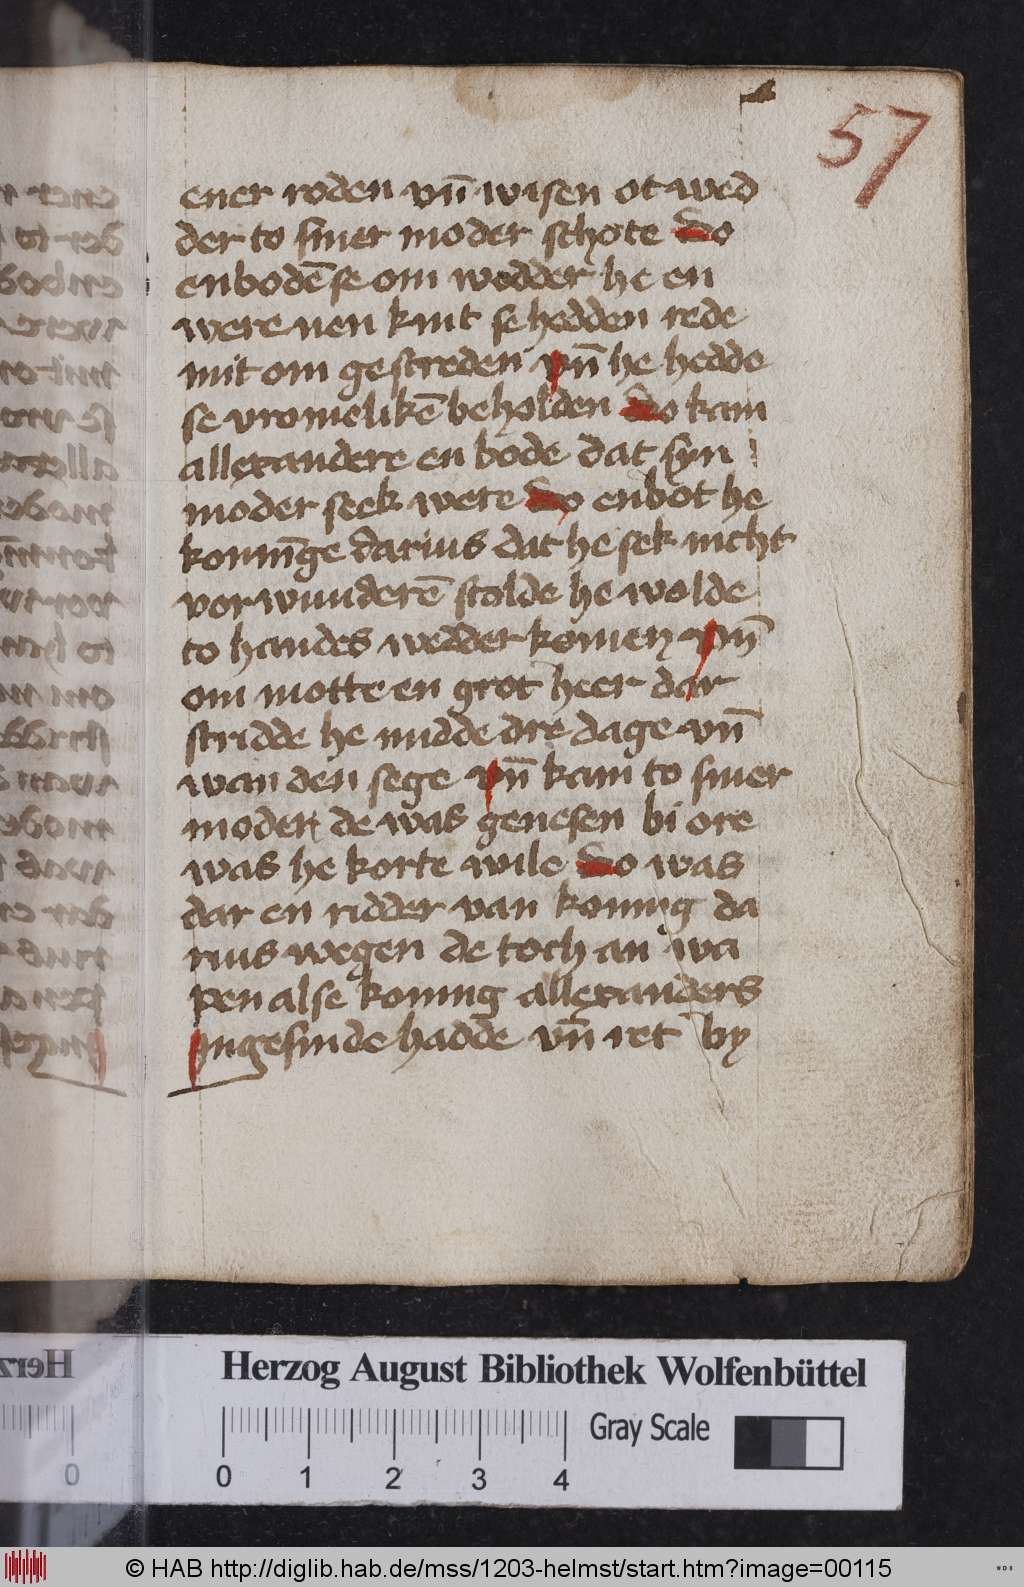 57
ener roden vn̄ wisen ot wed
der to siner moder schote Do
enbodē se om wedder he en
were nen kint se hedden rede
mit om gestreden vn̄ he hedde
se vromelikē beholden Do kam
allexandere en bode dat syn
moder seek were Do enbot he
koninge darius dat he sek nicht
vorwunderē scolde he wolde
to handes wedder komen vn̄
om motte en grot heer dar
stridde he midde dre dage vn̄
wan den sege vn̄ kam to siner
moder de was genesen bi ore
was he korte wile Do was
dar en ridder van koning da
rius wegen de toch an wa
pen alse koning allexanders
Ingesinde hadde vn̄ ret by
Herzog August Bibliothek Wolfenbüttel
Gray Scale
0 1 2 3 4
© HAB http://diglib.hab.de/mss/1203-helmst/start.htm?image=00115